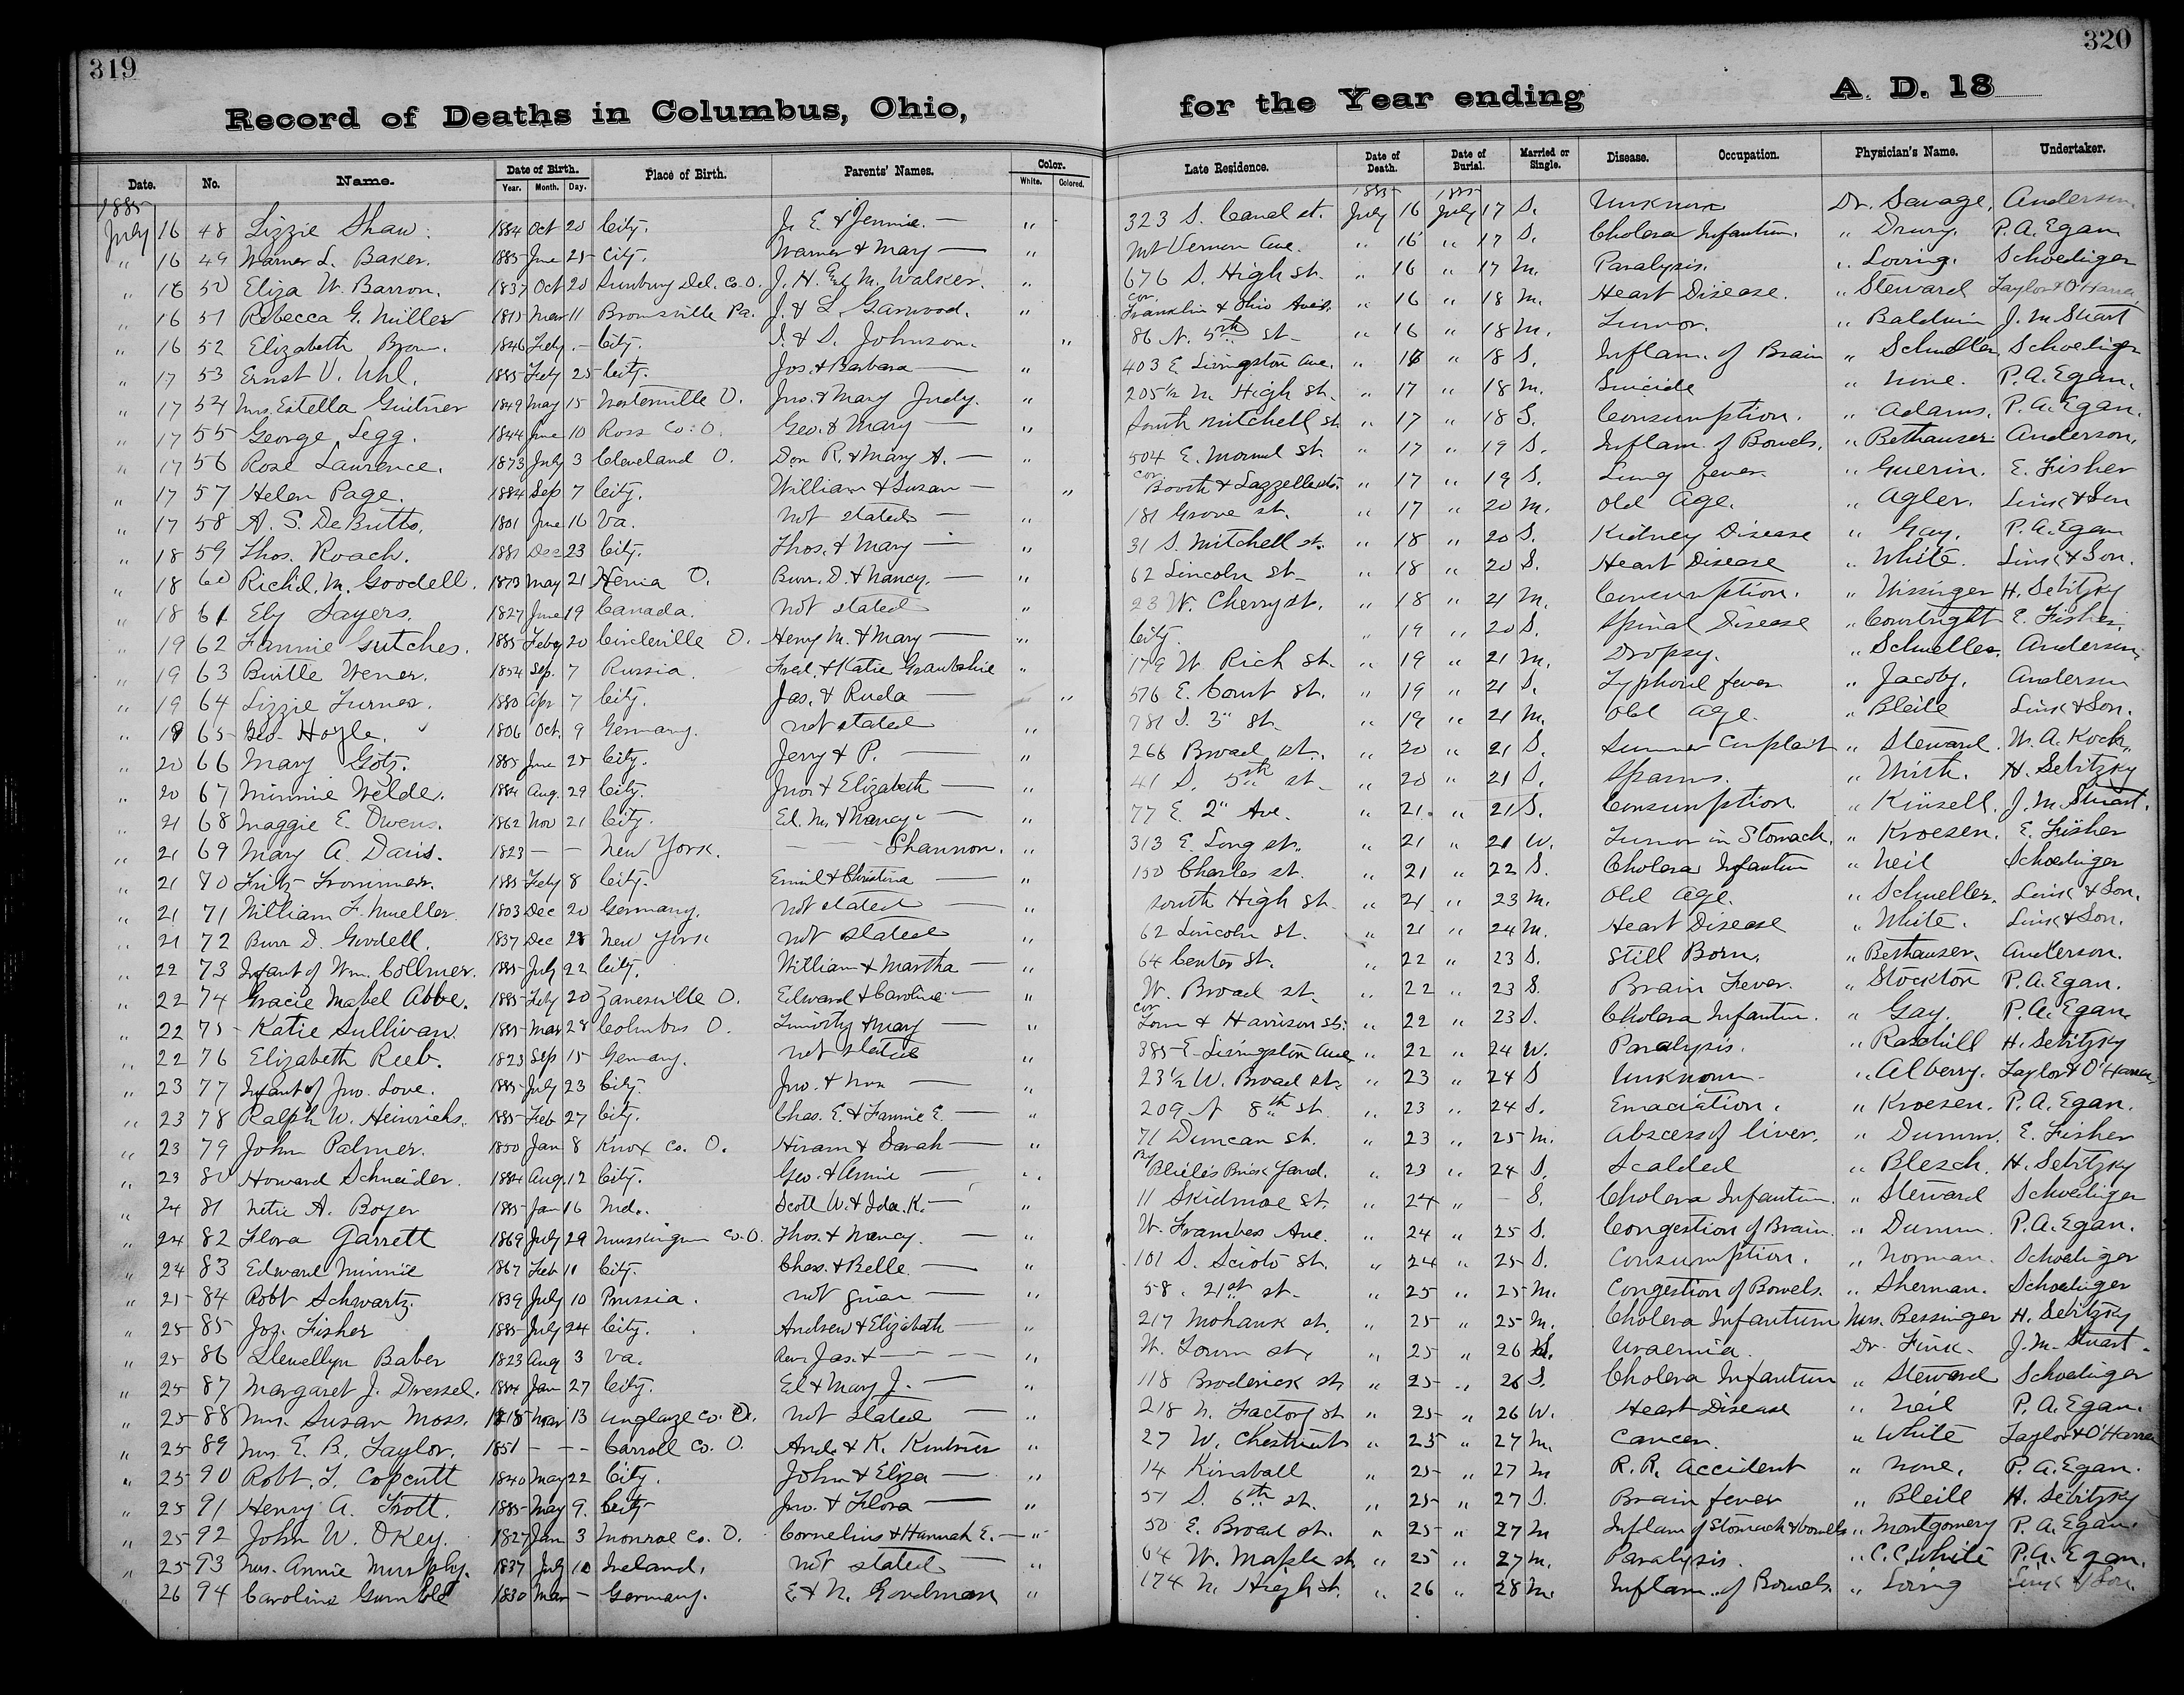 319
320
Record of Deaths in Columbus, Ohio, for the Year ending A. D. 18
Date. No. Name. Date of Birth. Year. Month. Day. Place of Birth. Parents' Names. Color. White. Colored. Late Residence. Date of Death. Date of Burial. Married or Single. Disease. Occupation. Physician's Name. Undertaker.
1885 1885 1885
July 16 48 Lizzie Shaw. 1884 Oct 20 City. J. E. & Jennie. — " 323 S. Canal st. July 16 July 17 S. Unknown Dr. Savage, Anderson.
" 16 49 Warner L. Baker. 1885 June 25 City. Warner & Mary — " Mt Vernon Ave. " 16 " 17 S. Cholera Infantum. " Drury. P. A. Egan
" 16 50 Eliza W. Barron. 1837 Oct 20 Sunbury Del. Co. O. J. H. & M. Walker. " 676 S. High st. " 16 " 17 M. Paralysis. " Loving. Schoedinger
" 16 51 Rebecca G. Miller 1815 Mar 11 Brownsville Pa. J. & L. Garwood. " cor. Franklin & Ohio Aves. " 16 " 18 M. Heart Disease. " Steward Taylor & O'Harra
" 16 52 Elizabeth Brown. 1846 Feby. — City. I. & S. Johnson. " 86 N. 5th st. " 16 " 18 M. Tumor. " Baldwin J. M. Stuart
" 17 53 Ernst V. Uhl. 1885 Feby 25 City. Jos. & Barbara — " 403 E Livingston Ave. " 16 " 18 S. Inflam. of Brain " Schueller Schoedinger
" 17 54 Mrs. Estella Guitner 1849 May 15 Westerville O. Jno. & Mary Judy. " 205½ N. High st. " 17 " 18 M. Suicide " None. P. A. Egan.
" 17 55 George Legg. 1844 June 10 Ross Co. O. Geo. & Mary — " South Mitchell st. " 17 " 18 S. Consumption. " Adams. P. A. Egan.
" 17 56 Rose Laurence. 1873 July 3 Cleveland O. Don R. & Mary A. — " 504 E. Mound st. " 17 " 19 S. Inflam. of Bowels. " Bethauser Anderson.
" 17 57 Helen Page. 1884 Sep 7 City. William & Susan — " cor Booth & Lazzelle sts. " 17 " 19 S. Lung fever " Guerin. E. Fisher
" 17 58 A. S. DeButts. 1801 June 16 Va. Not stated — " 181 Grove st. " 17 " 20 M. Old Age. " Agler. Link & Son
" 18 59 Thos. Roach. 1881 Dec 23 City. Thos. & Mary — " 31 S. Mitchell st. " 18 " 20 S. Kidney Disease " Gay. P. A. Egan
" 18 60 Rich'd. M. Goodell. 1873 May 21 Xenia O. Burr. D. & Nancy. — " 62 Lincoln st. " 18 " 20 S. Heart Disease " White. Link & Son.
" 18 61 Ely Sayers. 1827 June 19 Canada. Not stated " 23 W. Cherry st. " 18 " 21 M. Consumption. " Nissinger H. Sebitzky
" 19 62 Fannie Gutches. 1885 Feby 20 Circleville O. Henry M. & Mary — " City. " 19 " 20 S. Spinal Disease " Courtright E. Fisher.
" 19 63 Wener. 1854 Sep. 7 Russia. Fred. & Katie " 179 W. Rich st. " 19 " 21 M. Dropsy. " Schueller. Anderson.
" 19 64 Lizzie Turner. 1880 Apr 7 City. Jas. & Ruda — " 576 E. Court st. " 19 " 21 S. Typhoid fever " Jacoby. Anderson
" 19 65 Geo. Hoyle. 1806 Oct. 9 Germany. not stated " 781 S. 3" st. " 19 " 21 M. Old Age. " Bleile Link & Son.
" 20 66 Mary Götz. 1885 June 25 City. Jerry & P. — " 266 Broad st. " 20 " 21 S. Summer Complaint " Steward. W. A. Koch.
" 20 67 Minnie Wilde. 1884 Aug. 29 City. Jno. & Elizabeth — " 41 S. 5th st. " 20 " 21 S. Spasms. " Wirth. H. Sebitzky
" 21 68 Maggie E. Owens. 1862 Nov 21 City. Ed. M. & Nancy. — " 77 E. 2" Ave. " 21. " 21 S. Consumption " Kinsell. J. M. Stuart.
" 21 69 Mary A. Davis. 1823 — — New York. — — Shannon. " 313 E. Long st. " 21 " 21 W. Tumor in Stomach. " Kroesen. E. Fisher
" 21 70 Fritz Trommer. 1885 Feby 8 City. Emil & Christina — " 150 Charles st. " 21 " 22 S. Cholera Infantum " Neil Schoedinger
" 21 71 William F. Mueller. 1803 Dec 20 Germany. Not stated — " South High st. " 21 " 23 M. Old Age. " Schueller. Link & Son.
" 21 72 Burr D. Goodell. 1837 Dec 28 New York Not stated " 62 Lincoln st. " 21 " 24 M. Heart Disease " White. Link & Son.
" 22 73 Infant of Wm. Collmer. 1885 July 22 City. William & Martha — " 64 Center st. " 22 " 23 S. Still Born. " Bethauser. Anderson.
" 22 74 Gracie Mabel Abbe. 1885 Feby 20 Zanesville O. Edward & Caroline — " W. Broad st. " 22 " 23 S. Brain Fever. " Stockton P. A. Egan.
" 22 75 Katie Sullivan. 1885 Mar 28 Columbus O. Timothy & Mary — " cor Town & Harrison sts. " 22 " 23 S. Cholera Infantum. " Gay. P. A. Egan.
" 22 76 Elizabeth Reeb. 1823 Sep 15 Germany. not stated " 385 E. Livingston Ave " 22 " 24 W. Paralysis. " H. Sebitzky
" 23 77 Infant of Jno. Love. 1885 July 23 City. Jno. & — " 23½ W. Broad st. " 23 " 24 S Unknown " Alberry. Taylor & O'Harra
" 23 78 Ralph W. Heinrichs. 1885 Feb 27 City. Chas. E. & Fannie E. — " 209 N 8th st. " 23 " 24 S. Emaciation. " Kroesen. P. A. Egan.
" 23 79 John Palmer. 1850 Jan 8 Knox Co. O. Hiram & Sarah — " 71 Duncan st. " 23 " 25 M. Abscess of liver. " Dumm. E. Fisher
" 23 80 Howard Schneider. 1884 Aug. 12 City. Geo. & Annie — " By Bleile's Brick Yard. " 23 " 24 S. Scalded " Blesch. H. Sebitzky
" 24 81 Netie A. Boyer 1885 Jan 16 Md. Scott W. & Ida. K. — " 11 Skidmore st. " 24 " — S. Cholera Infantum. " Steward Schoedinger
" 24 82 Flora Garrett 1869 July 29 Muskingum Co. O. Thos. & Nancy. — " W. Frambes Ave. " 24 " 25 S. Congestion of Brain. " Dumm. P. A. Egan.
" 24 83 Edward Minnie 1867 Feb 11 City. Chas. & Belle. — " 101 S. Scioto st. " 24 " 25 S. Consumption. " Norman. Schoedinger
" 25 84 Robt Schwartz. 1839 July 10 Prussia. not given — " 58. 21st st. " 25 " 25 M. Congestion of Bowels. " Sherman. Schoedinger
" 25 85 Jos. Fisher 1885 July 24 City. Andrew & Elizabeth — " 217 Mohawk st. " 25 " 25 M. Cholera Infantum Mrs. Bessinger H. Sebitzky
" 25 86 Llewellyn Baber 1823 Aug 3 Va. Rev. Jas. & — — " W. Town st. " 25 " 26 Uraemia. Dr. Fink. J. M. Stuart.
" 25 87 Margaret J. Dressel. 1884 Jan 27 City. Ed & Mary J. — " 118 Broderick st " 25 " 26 S. Cholera Infantum " Steward Schoedinger
" 25 88 Mrs. Susan Moss. 1815 Mar 13 Auglaize Co. O. Not stated — " 218 N. Factory st " 25 " 26 W. Heart Disease " Neil P. A. Egan.
" 25 89 Mrs. E. B. Taylor. 1851 — — Carroll Co. O. And. & K. Kintner " 27 W. Chestnut " 25 " 27 M. Cancer. " White Taylor & O'Harra
" 25 90 Robt. T. Copcutt 1840 May 22 City. John & Eliza — " 14 Kimball " 25 " 27 M R. R. Accident " None. P. A. Egan.
" 25 91 Henry A. Trott. 1885 May 9. City Jno. & Flora — " 51 S. 6th st. " 25 " 27 S. Brain fever " Bleile H. Sebitzky
" 25 92 John W. OKey. 1827 Jan 3 Monroe Co. O. Cornelius & Hannah E. — " 50 E. Broad st. " 25 " 27 M Inflam of Stomach & bowels " Montgomery P. A. Egan.
" 25 93 Mrs. Annie Murphy. 1837 July 10 Ireland. Not stated — " 64 W. Maple st. " 25 " 27 M. Paralysis. " C. C. White P. A. Egan.
" 26 94 Caroline Gumble 1830 Mar — Germany. E. & N. Goodman " 174 N. High st. " 26 " 28 M. Inflam. of Bowels. " Loving Link & Son.